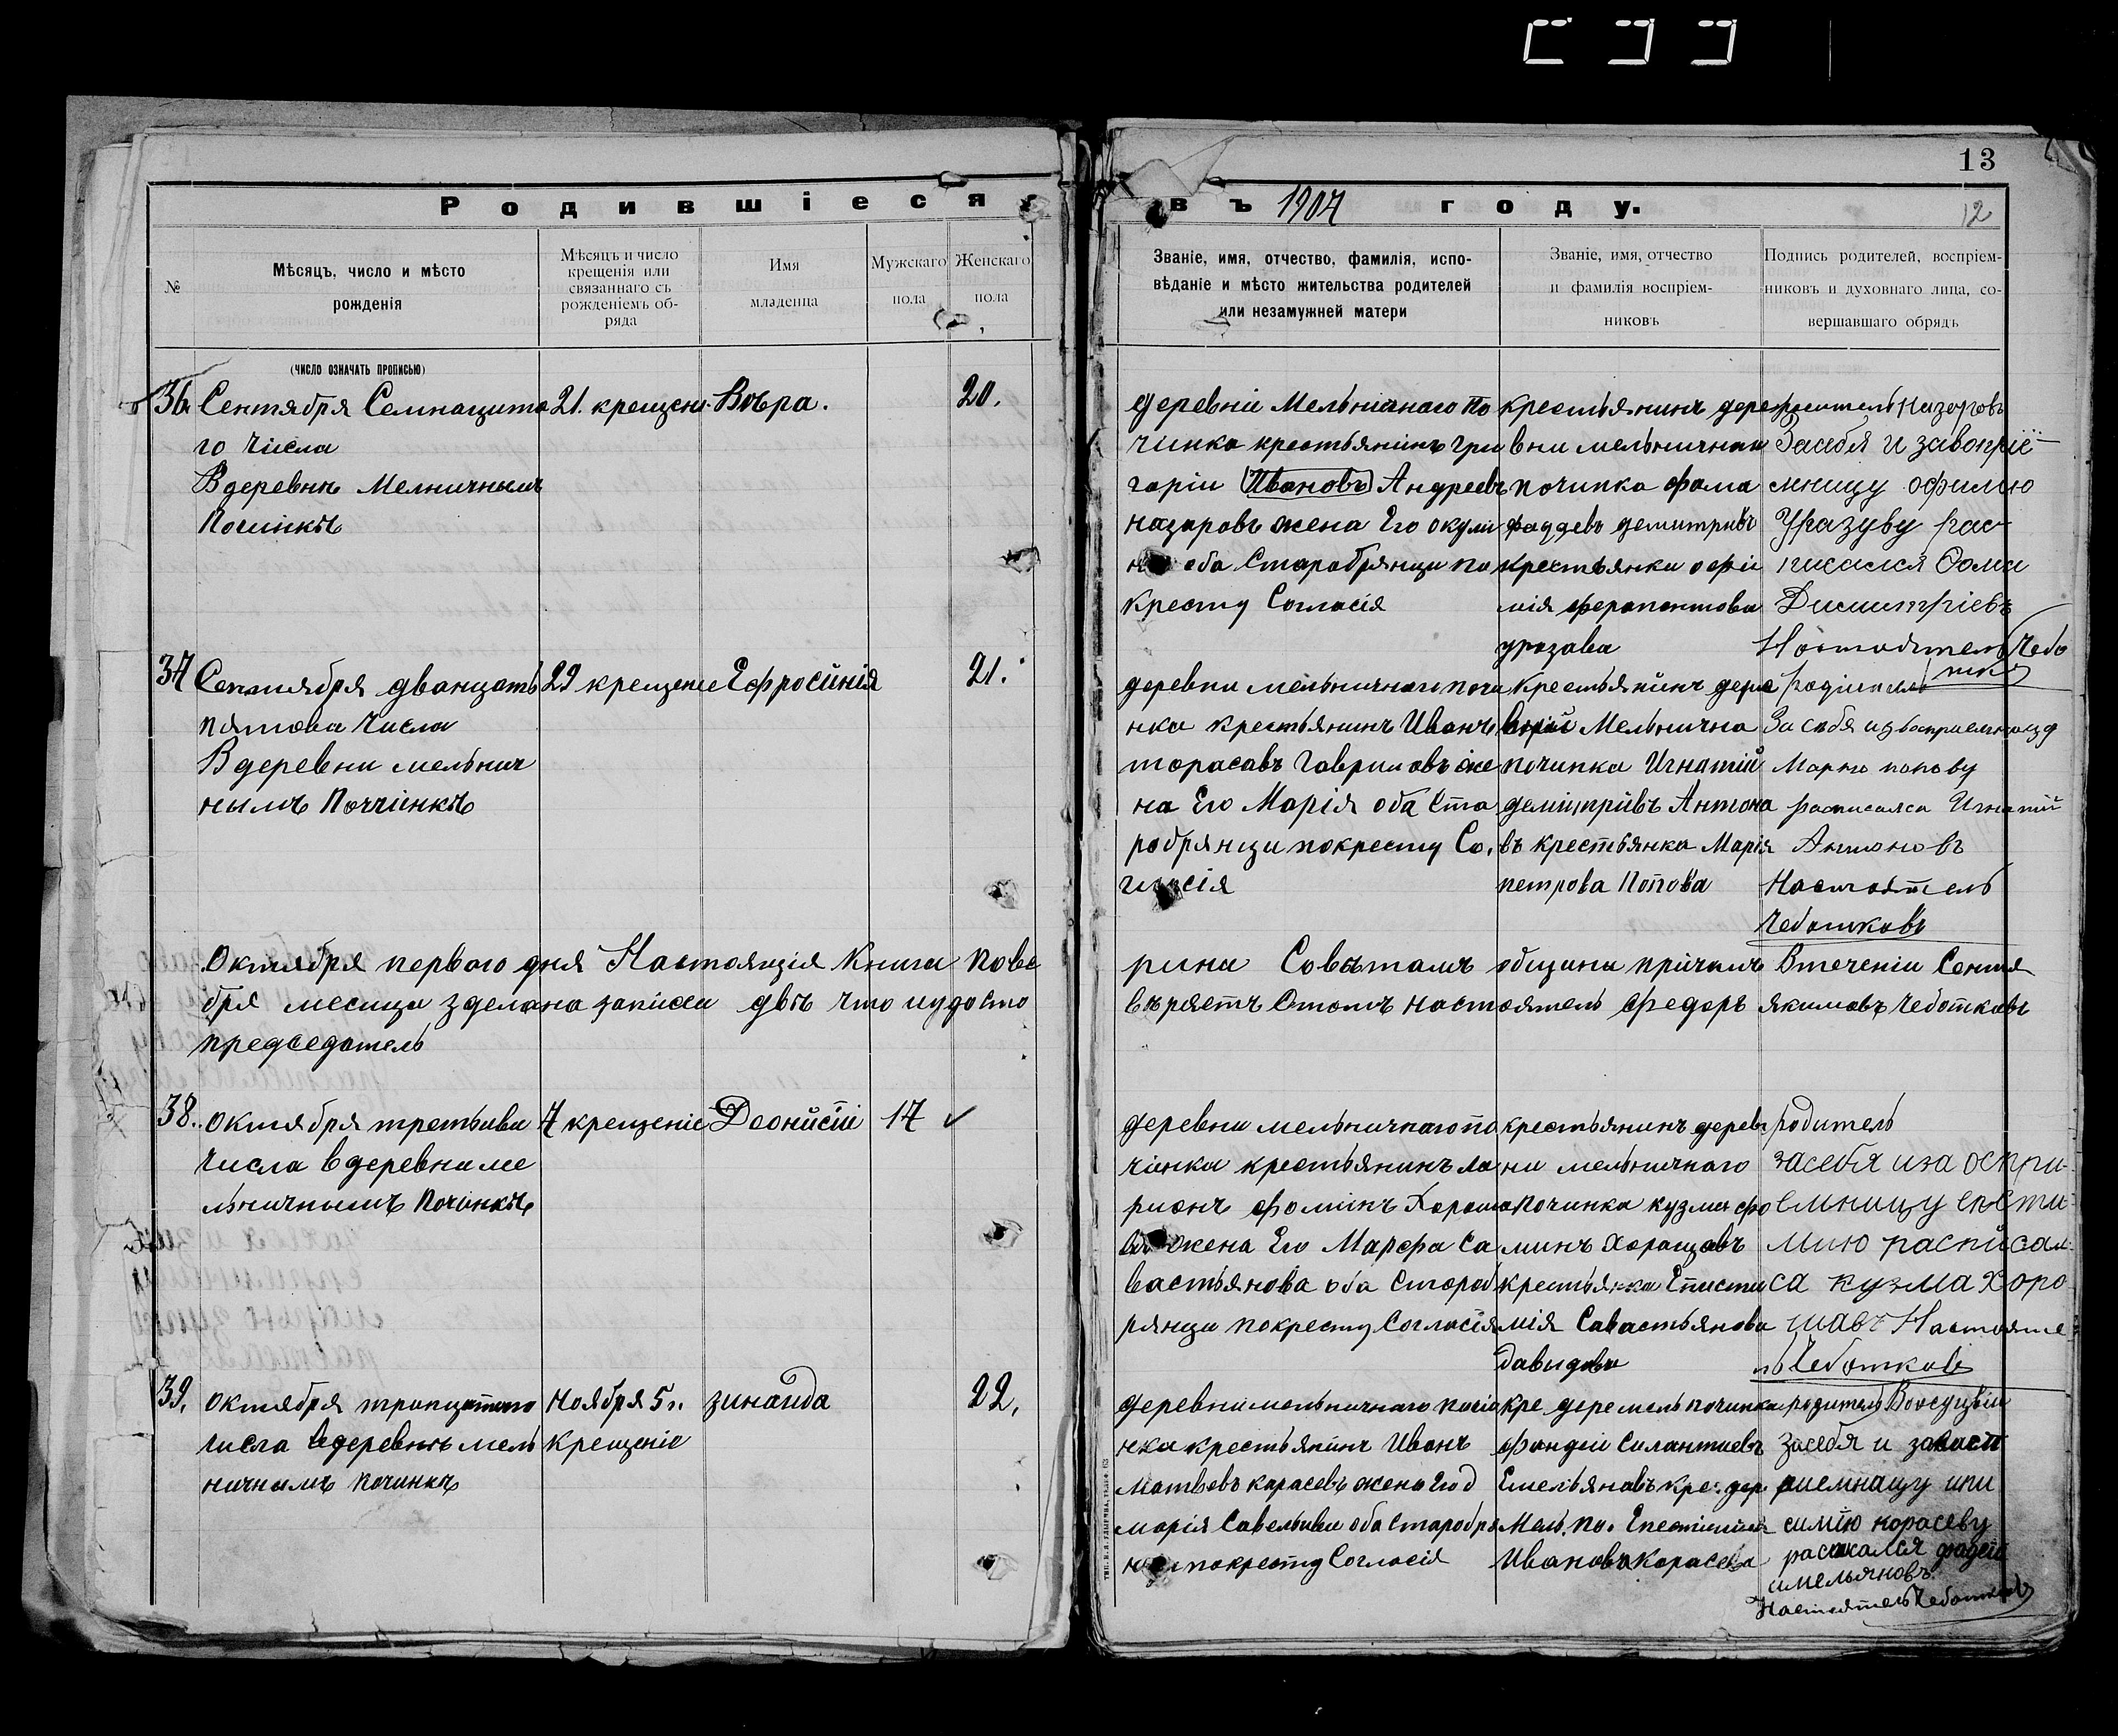 13
Родившіеся въ 1907 году.
12
№
Мѣсяцъ, число и мѣсто
рожденія
Мѣсяцъ и число
крещенія или
связаннаго съ
рожденіемъ об-
ряда
Имя
младенца
Мужскаго
пола
Женскаго
пола
Званіе, имя, отчество, фамилія, испо-
вѣданіе и мѣсто жительства родителей
или незамужней матери
Званіе, имя, отчество
и фамилія воспріем-
никовъ
Подпись родителей, воспріем-
никовъ и духовнаго лица, со-
вершавшаго обрядъ
(число означать прописью)
36.
Сентября Семнацито
го числа
В деревнѣ Мелничнымъ
Починкѣ
21. крещени.
Вѣра.
20.
деревни Мельничнаго По
чинка крестьянинъ гри
гории Ивановъ Андреевъ
назаровъ жена Его окули
оба Старобрянци по
кресту Согласія
крестьянинъ дере
вни мельничнаи
починка фома
фаддевъ демитривъ
крестьянка офи
мія ферапонтова
уразава
родитель Назаровъ
За себя и завоприе
мницу офимю
Уразуву рас-
писался Фома
Димитріевъ
Настоятель Чебо
тков
37
Сентября дванцать
пятова числа
В деревни мельнич
нымъ Поччинкѣ
29 крещение
Ефросинія
21.
деревни мельничнаго почи
нка крестьянинъ Иванъ
тарасавъ Гавриловъ же
на Его Марія оба Ста
робрянци покресту Со.
гласія
крестьянинъ дере
Мельнична
починка Игнатій
демитривъ Антона
въ крестьянка Марія
петрова Попова
родитель
За себя и
Марю попову
расписался Игнатий
Антоновъ
Настоятель
Чеботковъ
Октября первого дня Настоящія Книги пове
рина Совѣтамъ общины причемъ Втечении Сентя
бря месяца зделана записеи двѣ что и удосто
вѣряетъ Стомъ настоятель Федоръ якимовъ Чеботковъ
председатель
38.
октября третьива
числа в деревни ме
льничнымъ Починкѣ
7 крещеніе
Деонисій
17
деревни мельничнаго по
чинка крестьянинъ ла
рионъ фоминъ Хораша
жена Его Марфа Са
вастьянова оба Старооб
рянци покресту Согласія
крестьянинъ дерев
ни мельничнаго
починка кузма фо
минъ Хоращавъ
крестьянка Еписти
мія Савастьянова
давыдова
родитель
засебя иза оспри-
емницу епсти-
мию расписал-
са кузма хоро
шавъ Настояте
ль Чеботковъ
39.
октября тропцатаго
числа в деревнѣ мель
ничнымъ починкѣ
Ноября 5 г.
крещеніе
зинаида
22.
деревни мельничнаго почи
нка крестьянинъ Иванъ
матвевъ карасевъ жена Его
марія Савельива оба Старобря
покресту Согласія
кре дере мель починка
Фандей Силантиевъ
Емельяновъ кре. дер.
Мель. по. Епестимия
Иванова Карасева
родитель
засебя и завасп
риемницу ипи
симию корасеву
расписался фадеи
имельяновъ
Настоятель Чеботковъ